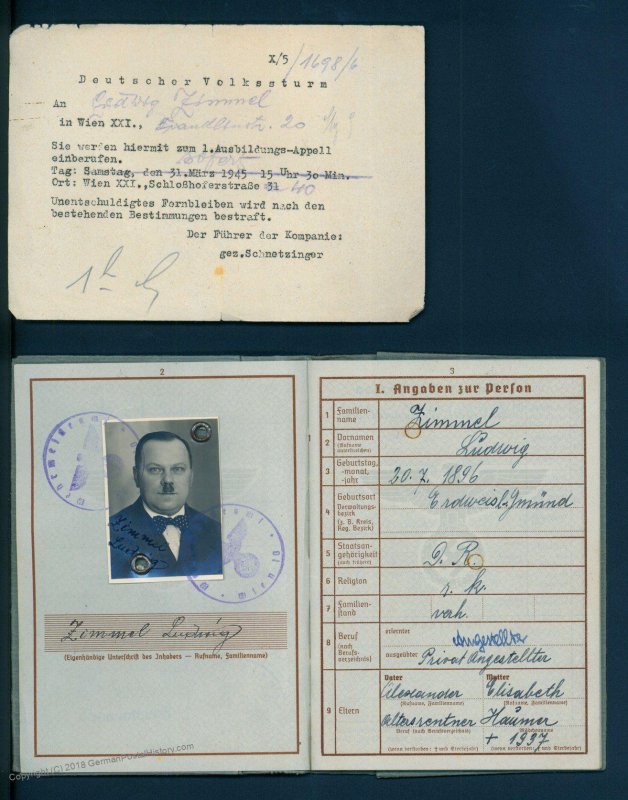 X/5/1698/6
Deutscher Volkssturm
An Ludwig Zimmel
in Wien XXI., 20
Sie werden hiermit zum 1.Ausbildungs-Appell
einberufen. sofort
Tag: Samstag, den 31.März 1945 15 Uhr 30 Min.
Ort: Wien XXI.,Schloßhoferstraße 31 40
Unentschuldigtes Fernbleiben wird nach den
bestehenden Bestimmungen bestraft.
Der Führer der Kompanie:
gez.Schnetzinger
2
Wehrmeldeamt Wien
Wehrmeldeamt Wien
Zimmel
Ludwig
Zimmel Ludwig
(Eigenhändige Unterschrift des Inhabers — Rufname, Familienname)
3
I. Angaben zur Person
1 Familienname Zimmel
2 Vornamen (Rufname unterstreichen) Ludwig
3 Geburtstag, -monat, -jahr 20.7.1896
4 Geburtsort Verwaltungsbezirk (z. B. Kreis, Reg. Bezirk) Erdweis b. Gmünd
5 Staatsangehörigkeit (auch frühere) D. R.
6 Religion r. k.
7 Familienstand verh.
8 Beruf (nach Berufsverzeichnis) erlernter Angestellter
ausgeübter Privat Angestellter
9 Eltern
Vater Mutter
Alexander Elisabeth
(Rufname, Familienname) (Rufname, Familienname)
Altersrentner Häumer
Beruf (nach Berufsverzeichnis) Mädchenname
+ 1937
(wenn verstorben: † und Sterbejahr) (wenn verstorben: † und Sterbejahr)
Copyright (C) 2018 GermanPostalHistory.com